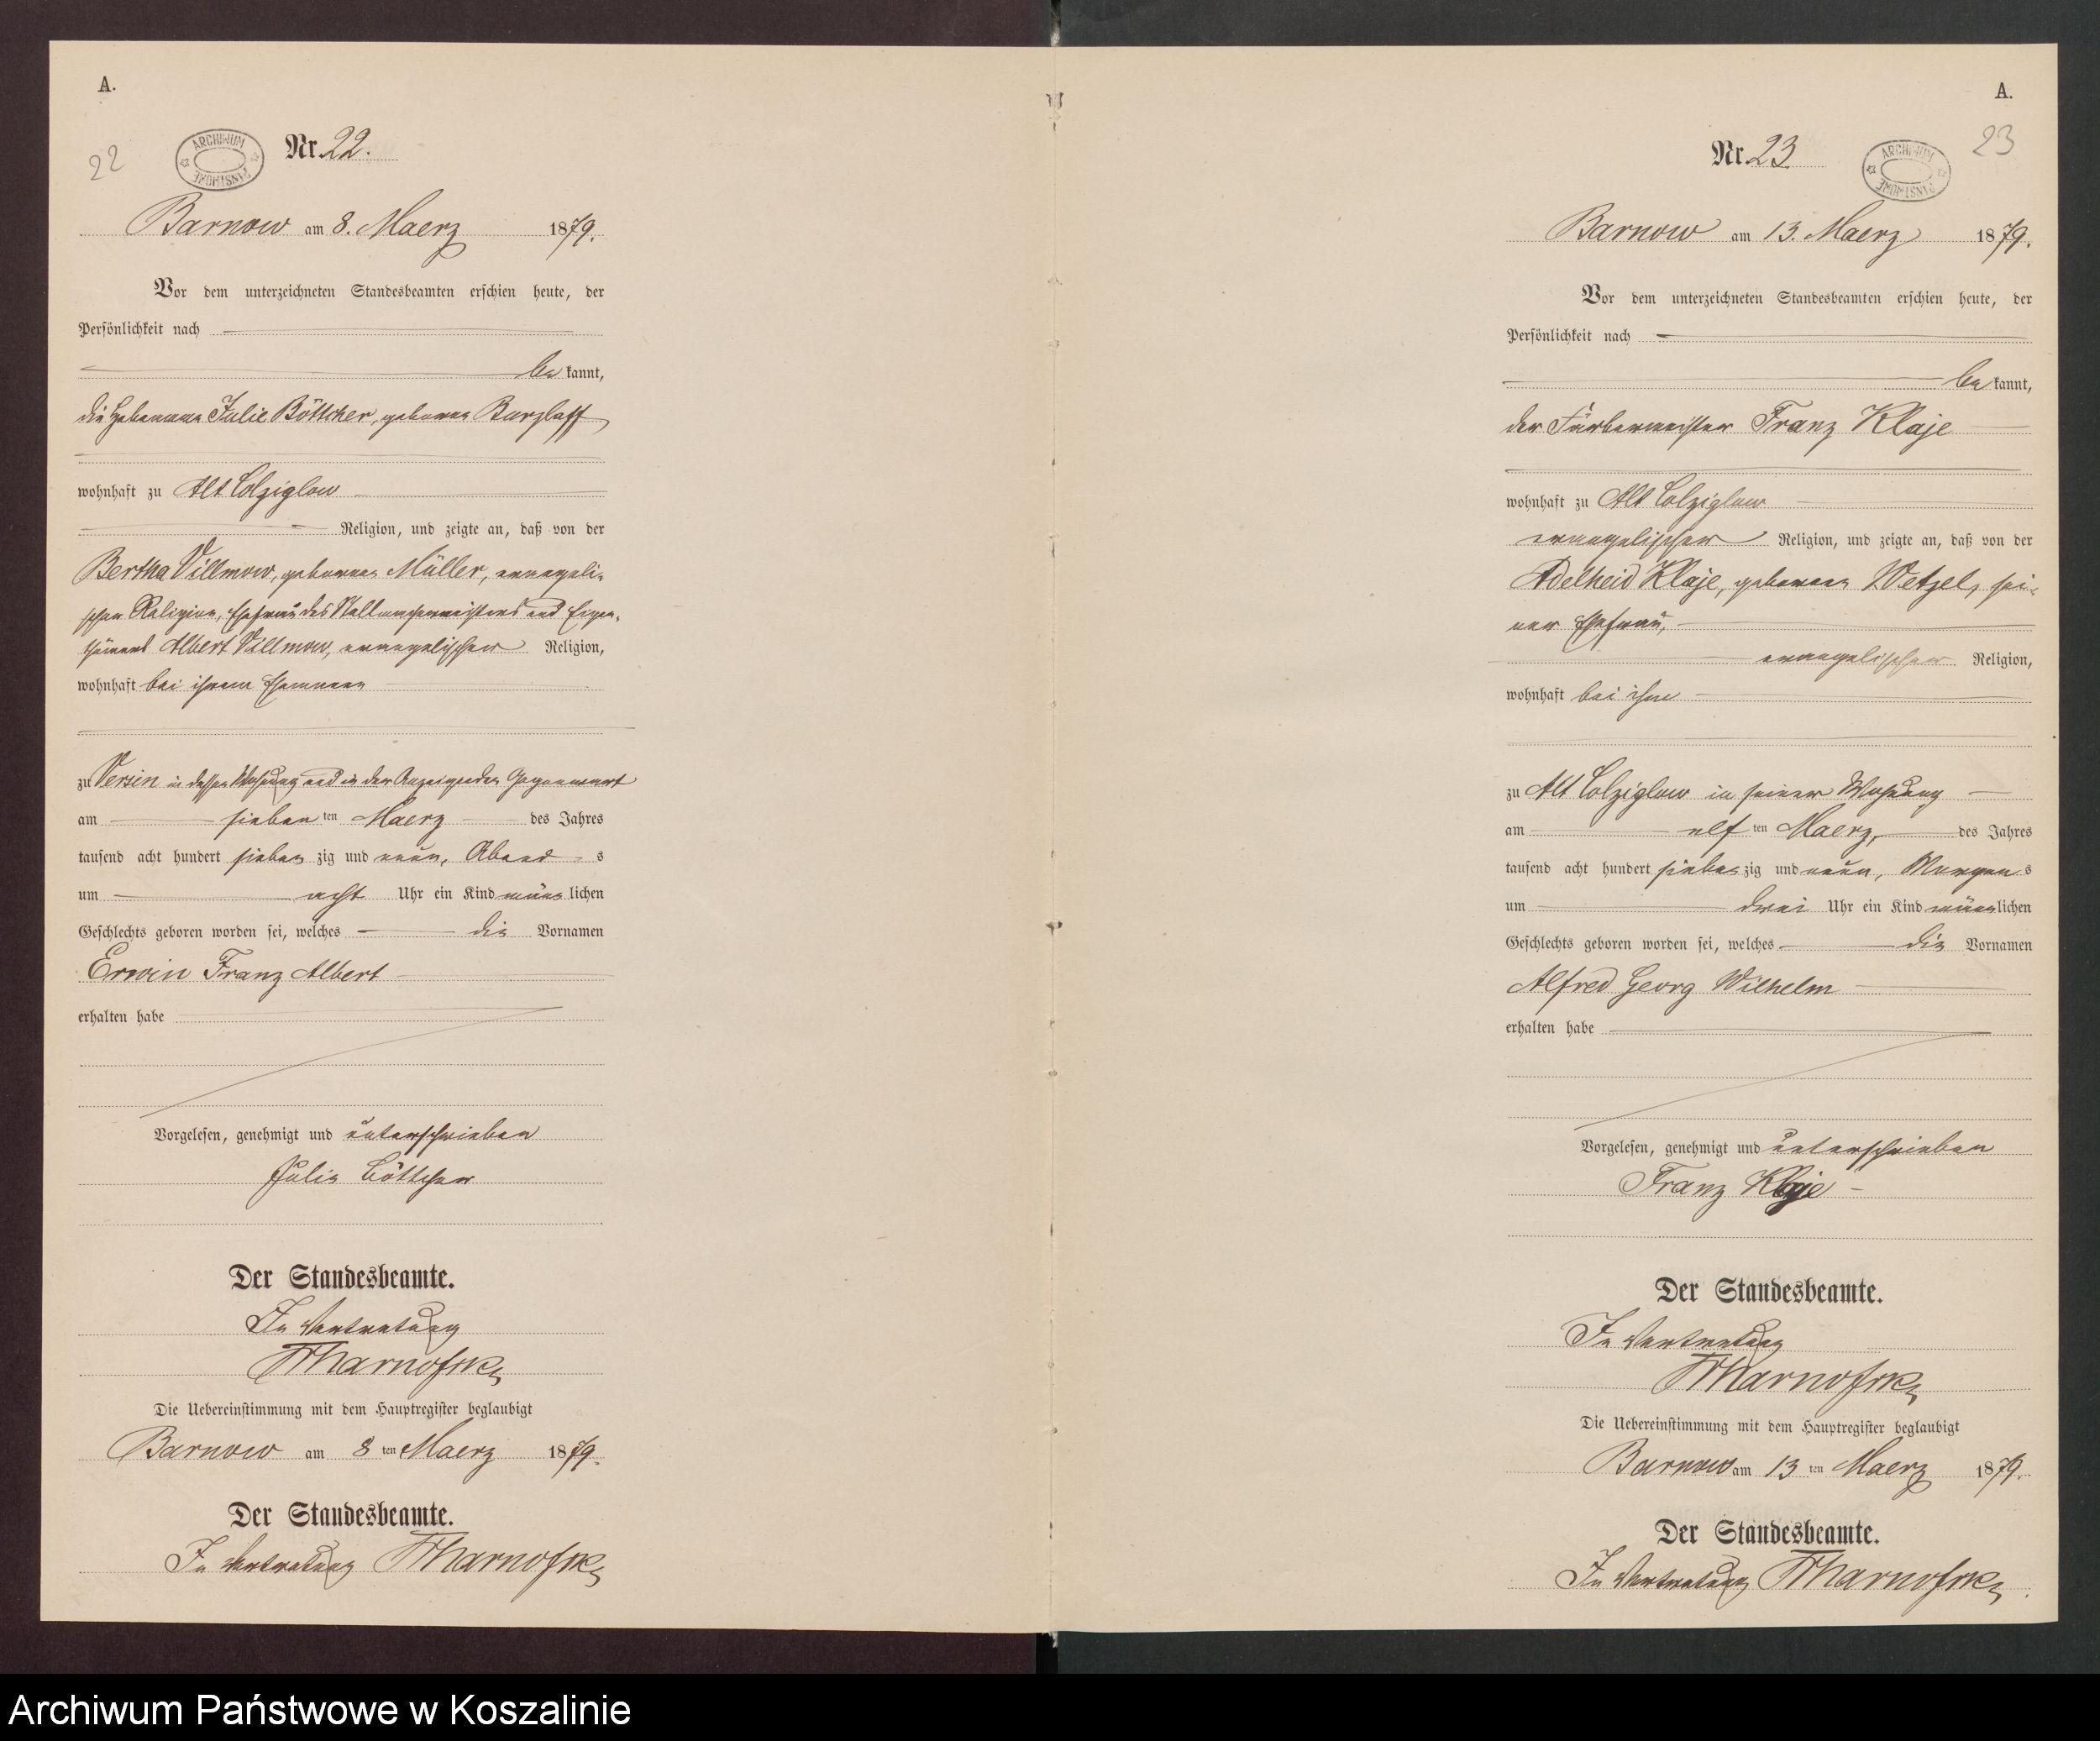 A.
22
ARCHIWUM PAŃSTWOWE
Nr. 22.
Barnow am 8. Maerz 1879.
Vor dem unterzeichneten Standesbeamten erschien heute, der
Persönlichkeit nach
be kannt,
die Hebamme Julie Böttcher, geborene Barzlaff,
wohnhaft zu Alt Colziglow
Religion, und zeigte an, daß von der
Bertha Villmow, geborenen Müller, evangeli-
scher Religion, Ehefrau des und Eigen-
thümers Albert Villmow, evangelischer Religion,
wohnhaft bei ihrem Ehemann
zu Versin in dessen Wohnung und in der Anzeigenden Gegenwart
am sieben ten Maerz des Jahres
tausend acht hundert sieben zig und neun, Abend s
um acht Uhr ein Kind männ lichen
Geschlechts geboren worden sei, welches die Vornamen
Erwin Franz Albert
erhalten habe
Vorgelesen, genehmigt und unterschrieben
Julie Böttcher
Der Standesbeamte.
In Vertretung
Die Uebereinstimmung mit dem Hauptregister beglaubigt
Barnow am 8 ten Maerz 1879.
Der Standesbeamte.
In Vertretung
A.
23
ARCHIWUM PAŃSTWOWE
Nr. 23
Barnow am 13. Maerz 1879.
Vor dem unterzeichneten Standesbeamten erschien heute, der
Persönlichkeit nach
be kannt,
der Färbermeister Franz Klaje
wohnhaft zu Alt Colziglow
evangelischer Religion, und zeigte an, daß von der
Adelheid Klaje, geborenen Wetzel, sei-
ner Ehefrau,
evangelischer Religion,
wohnhaft bei ihm
zu Alt Colziglow in seiner Wohnung
am elf ten Maerz, des Jahres
tausend acht hundert sieben zig und neun, Morgen s
um drei Uhr ein Kind männ lichen
Geschlechts geboren worden sei, welches die Vornamen
Alfred Georg Wilhelm
erhalten habe
Vorgelesen, genehmigt und unterschrieben
Franz Klaje
Der Standesbeamte.
In Vertretung
Die Uebereinstimmung mit dem Hauptregister beglaubigt
Barnow am 13 ten Maerz 1879.
Der Standesbeamte.
In Vertretung
Archiwum Państwowe w Koszalinie